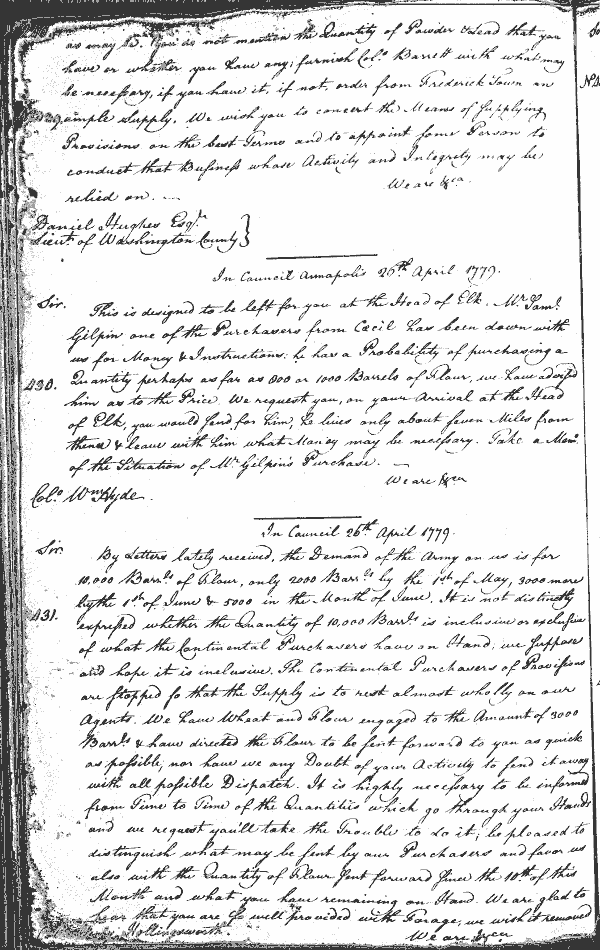 as may be. You do not mention the Quantity of Powder & Lead that you
have or whether you have any; furnish Colo. Barrett with what may
be necessary, if you have it, if not, order from Frederick Town an
ample Supply. We wish you to concert the Means of Supplying
Provisions on the best Terms and to appoint some Person to
conduct that Business whose Activity and Integrity may be
relied on. —
We are &ca.
Daniel Hughes Esqr.
Lieut. of Washington County }
In Council Annapolis 26th April 1779.
Sir. This is designed to be left for you at the Head of Elk. Mr. Saml.
Gilpin one of the Purchasers from Cecil has been down with
us for Money & Instructions: he has a Probability of purchasing a
430. Quantity perhaps as far as 800 or 1000 Barrels of Flour, we have advised
him as to the Price. We request you, on your Arrival at the Head
of Elk, you would send for him, he lives only about seven Miles from
thence & leave with him what Money may be necessary. Take a Mem.
of the Situation of Mr. Gilpin's Purchase. —
We are &ca
Colo. Wm. Hyde.
In Council 26th April 1779.
Sir. By Letters lately received, the Demand of the Army on us is for
10,000 Barrls. of Flour, only 2000 Barrls. by the 1st of May, 3000 more
by the 1st of June & 5000 in the Month of June. It is not distinctly
431. expressed whether the Quantity of 10,000 Barrls. is inclusive or exclusive
of what the Continental Purchasers have on Hand; we suppose
and hope it is inclusive. The Continental Purchasers of Provisions
are stopped so that the Supply is to rest almost wholly on our
Agents. We have Wheat and Flour engaged to the Amount of 3000
Barrls. & have directed the Flour to be sent forward to you as quick
as possible, nor have we any Doubt of your Activity to send it away
with all possible Dispatch. It is highly necessary to be informed
from Time to Time of the Quantities which go through your Hands
and we request you'll take the Trouble to do it; be pleased to
distinguish what may be sent by our Purchasers and favor us
also with the Quantity of Flour sent forward since the 10th of this
Month and what you have remaining on Hand. We are glad to
hear that you are so well provided with Forage, we wish it removed
Hollingsworth
We are &ca